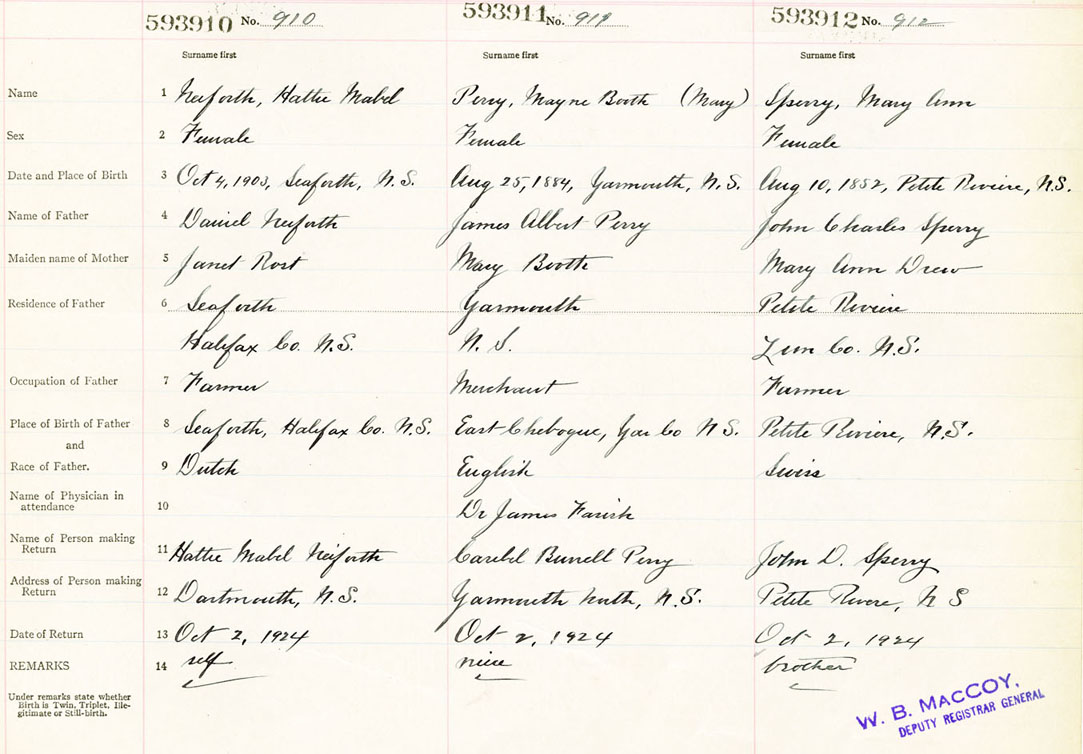 593910 No. 910 593911 No. 911 593912 No. 912
Surname first Surname first Surname first
Name 1 Neiforth, Hattie Mabel Perry, Mayne Booth (Mary) Sperry, Mary Ann
Sex 2 Female Female Female
Date and Place of Birth 3 Oct 4, 1903, Seaforth, N.S. Aug 25, 1884, Yarmouth, N.S. Aug 10, 1852, Petite Riviere, N.S.
Name of Father 4 Daniel Neiforth James Albert Perry John Charles Sperry
Maiden name of Mother 5 Janet Rost Mary Booth Mary Ann Drew
Residence of Father 6 Seaforth Yarmouth Petite Riviere
Halifax Co. N.S. N.S. Lun Co. N.S.
Occupation of Father 7 Farmer Merchant Farmer
Place of Birth of Father 8 Seaforth, Halifax Co. N.S. East Chebogue, Yar Co N S. Petite Riviere, N.S.
and
Race of Father. 9 Dutch English Swiss
Name of Physician in
attendance 10 Dr James Farish
Name of Person making
Return 11 Hattie Mabel Neiforth Burrell Perry John D. Sperry
Address of Person making
Return 12 Dartmouth, N.S. Yarmouth North, N.S. Petite Rivere, N S
Date of Return 13 Oct 2, 1924 Oct 2, 1924 Oct 2, 1924
REMARKS 14 self niece brother
Under remarks state whether
Birth is Twin, Triplet, Ille-
gitimate or Still-birth.
W. B. MACCOY,
DEPUTY REGISTRAR GENERAL